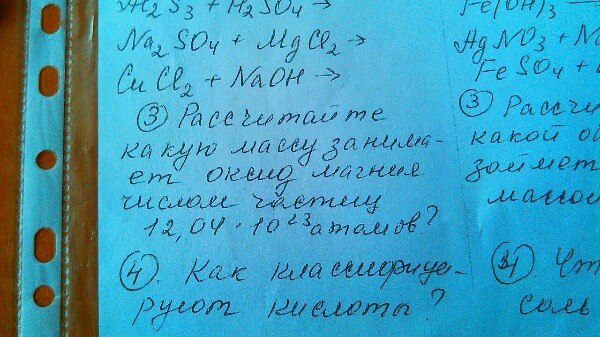 Al2S3 + H2SO4 →
Na2SO4 + MgCl2 →
CuCl2 + NaOH →
③ Рассчитайте
какую массу занима-
ет оксид магния
числом частиц
12,04 · 10^23 атомов?
④. Как классифици-
руют кислоты?
Fe(OH)3
AgNO3 +
FeSO4 +
③
какой
займет
массой
④.
соль